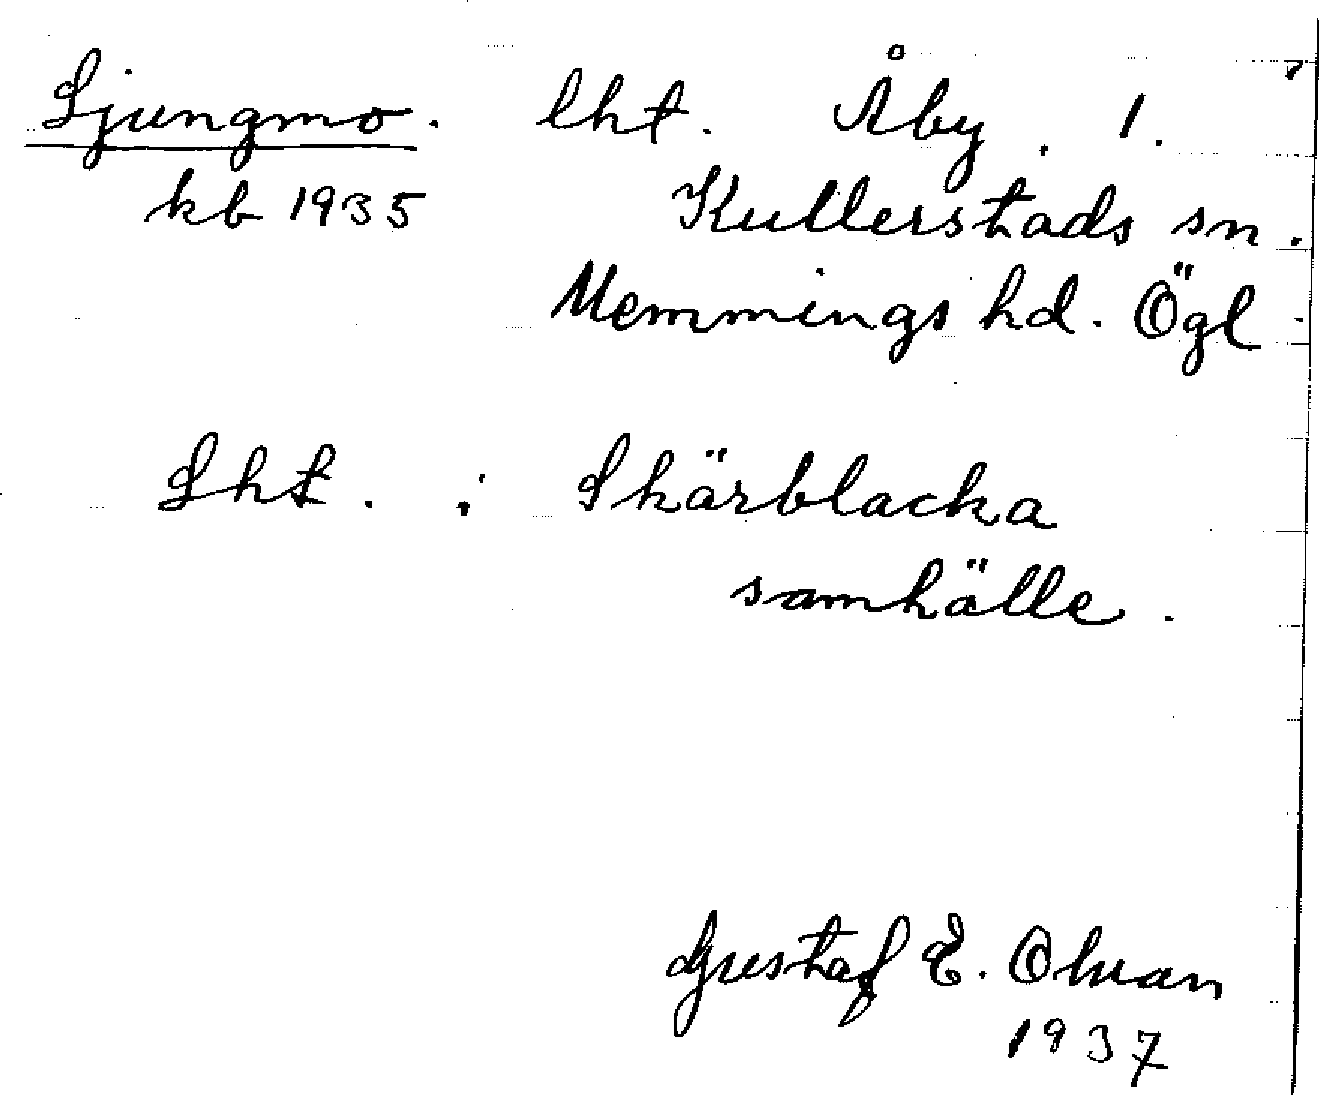 Ljungmo. lht. Åby. 1.
kb 1935 Kullerstads sn.
Memmings hd. Ögl.
Lht. i Skärblacka
samhälle.
Gustaf E. Olvan
1937